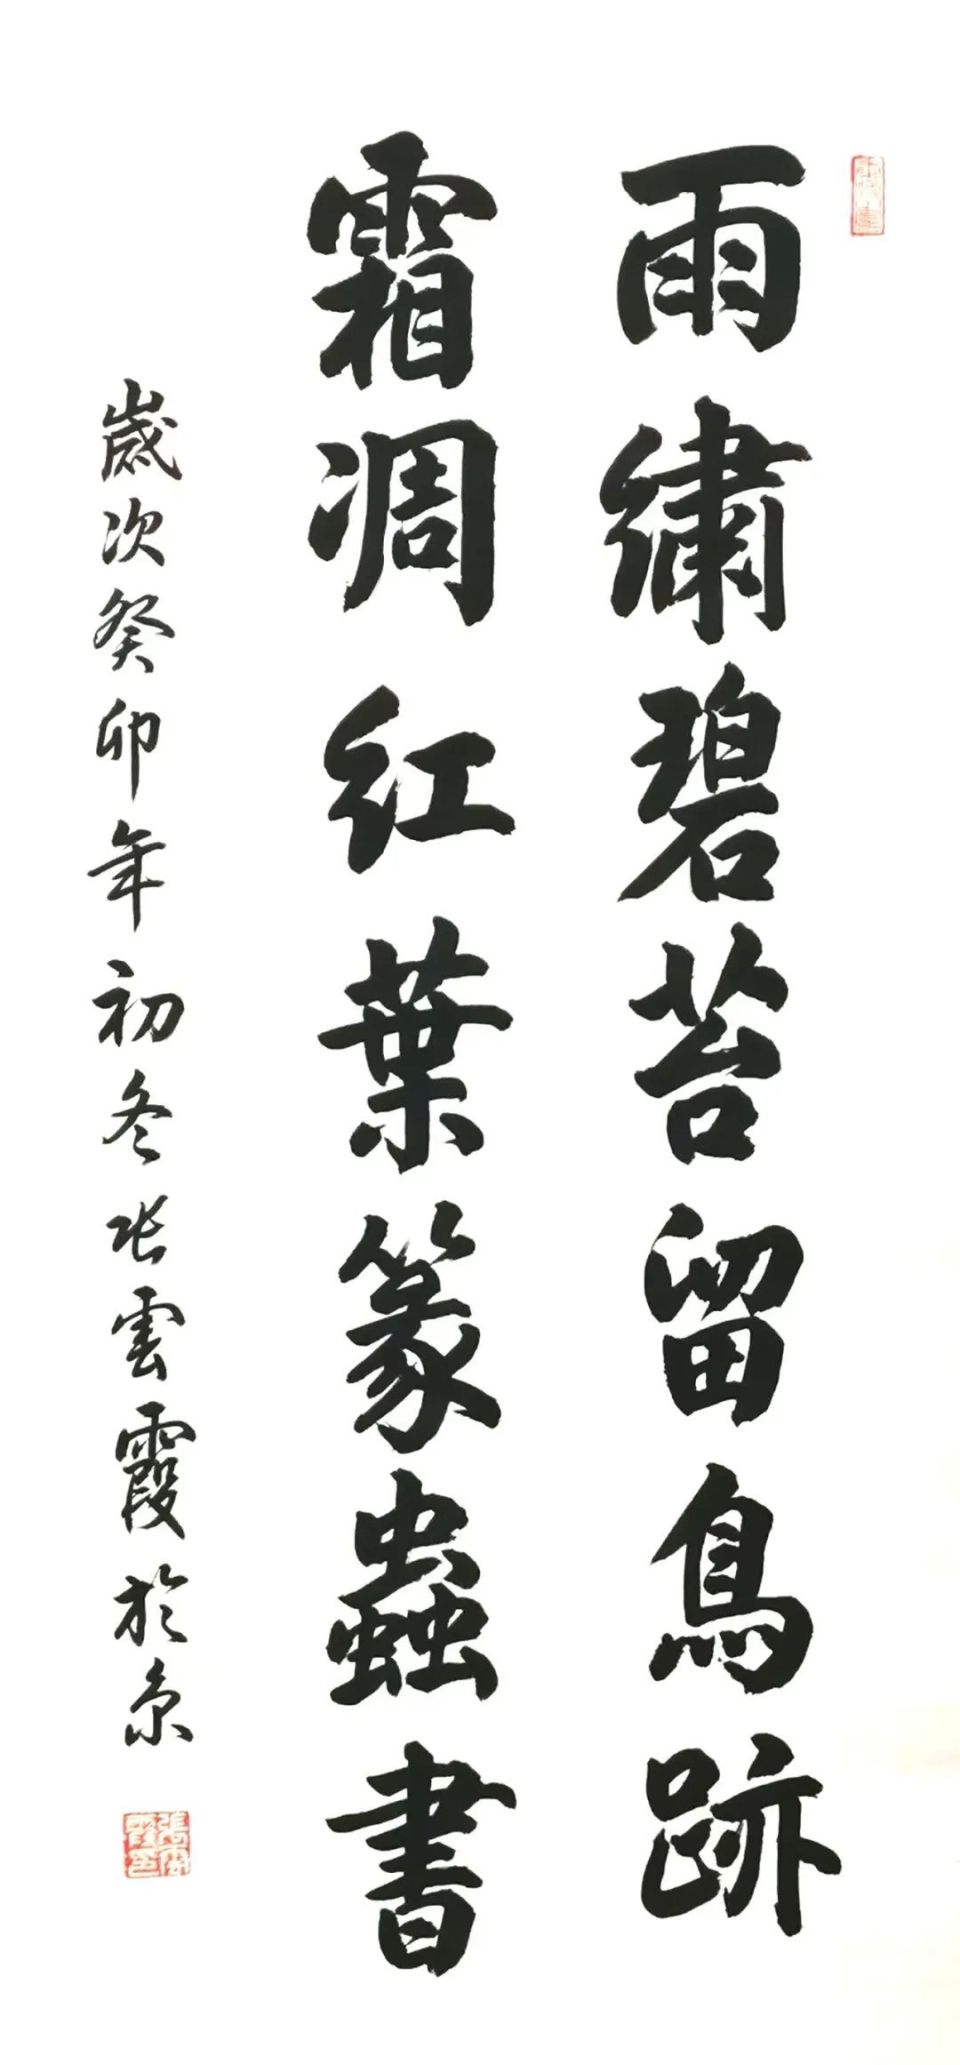 雨繡碧苔留鳥跡
霜凋紅葉篆蟲書
歲次癸卯年初冬张雲霞於京
張雲霞印